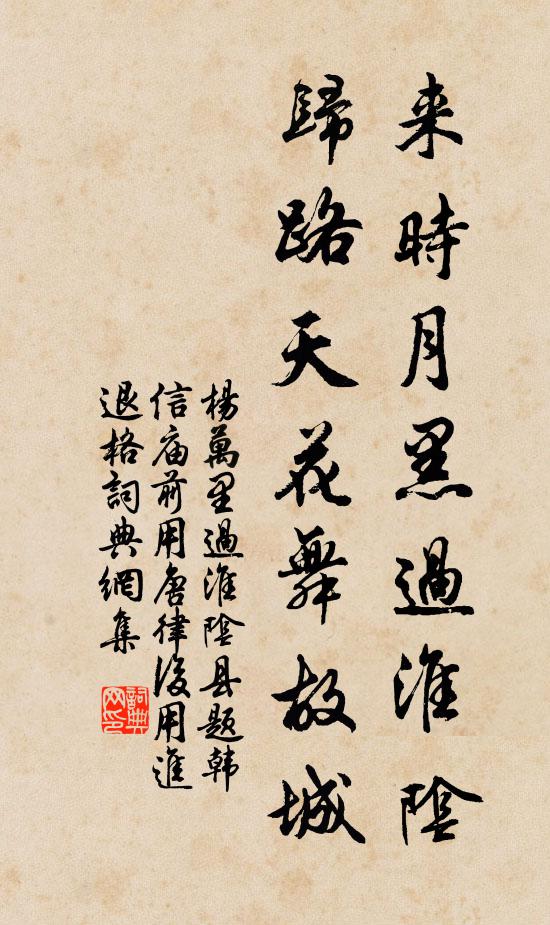 来時月黑過淮陰
歸路天花舞故城
楊萬里過淮陰县題韓
信庙前用唐律後用進
退格詞典網集
詞典
网印